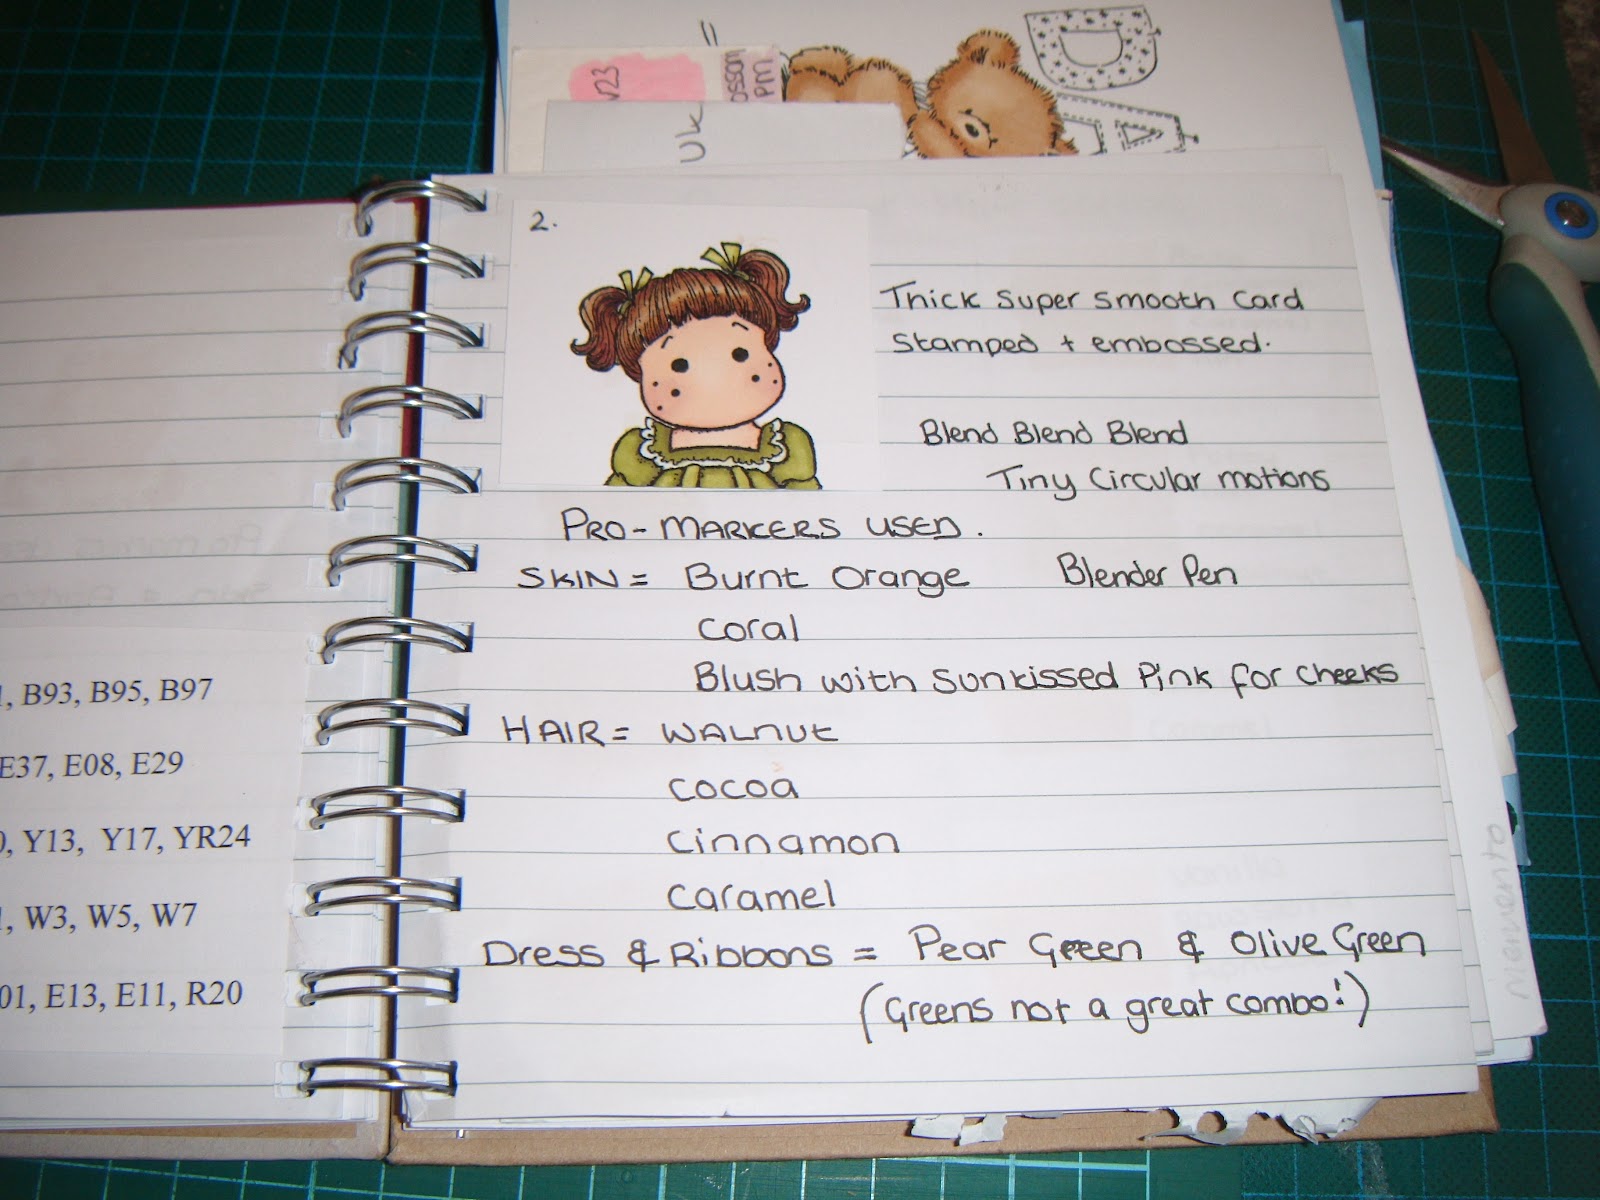 V23
PM
UK
2.
Thick Super Smooth Card
Stamped + embossed.
Blend Blend Blend
Tiny Circular motions
PRO-MARKERS USED.
SKIN = Burnt Orange Blender Pen
Coral
Blush with Sunkissed Pink for cheeks
HAIR = WALNUT
Cocoa
Cinnamon
Caramel
Dress & Ribbons = Pear Green & Olive Green
(Greens not a great combo!)
B93, B95, B97
E37, E08, E29
Y13, Y17, YR24
W3, W5, W7
01, E13, E11, R20
Memento